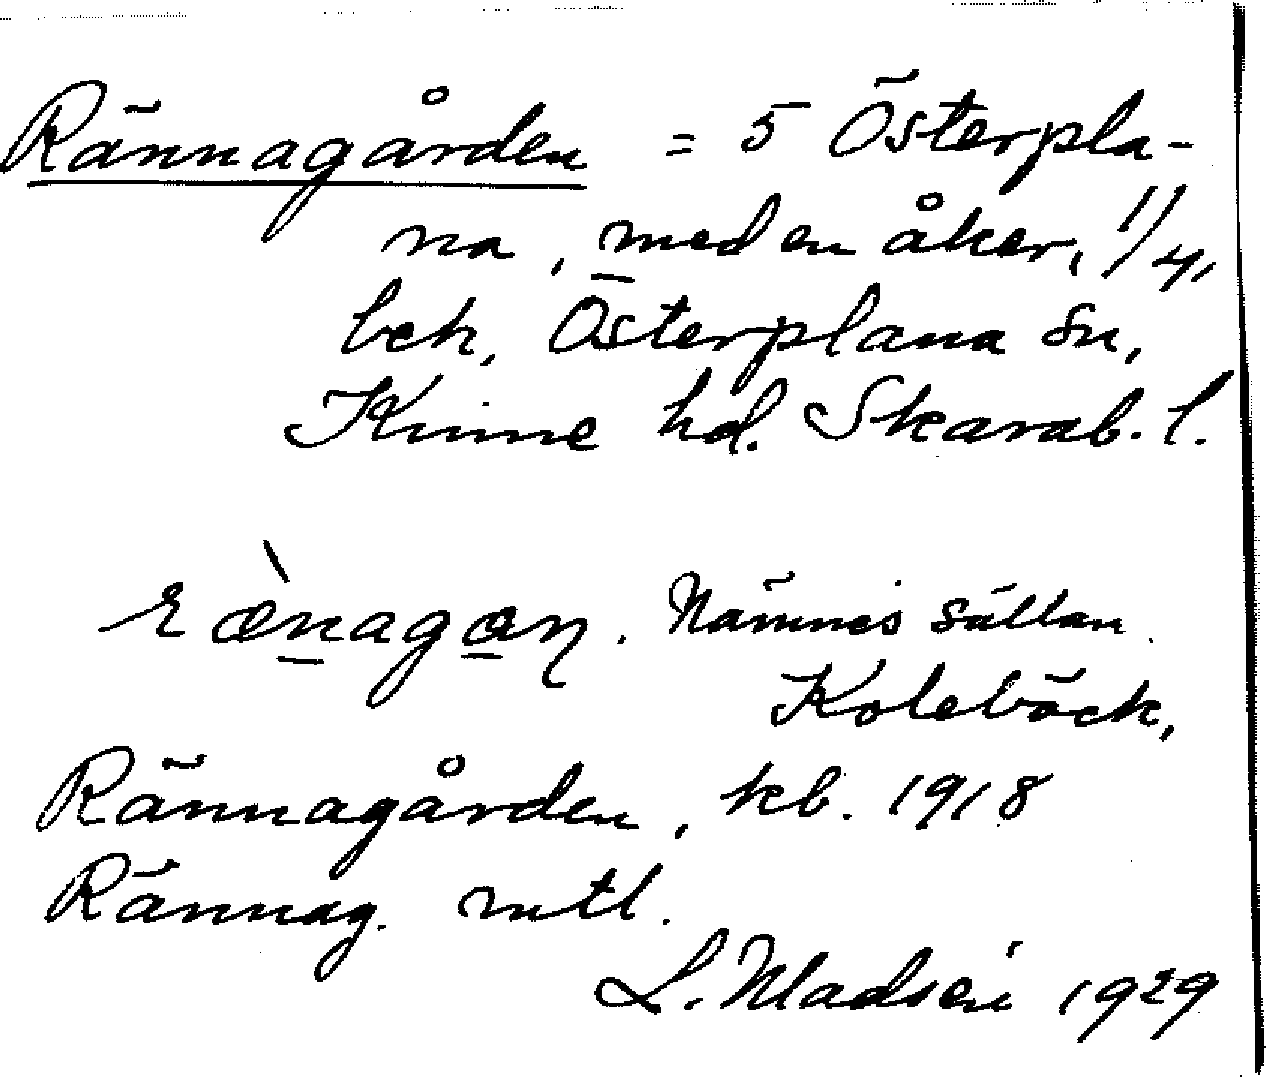 Rännagården = 5 Österpla-
na, med en åker, 1/4,
beh, Österplana sn,
Kinne hd. Skarab. l.
rænagan. Nämnes sällan.
Kolebäck,
Rännagården, kb. 1918
Rännag. mtl.
L. Madsen 1929